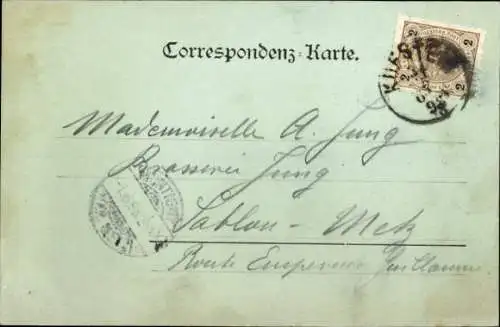 Correspondenz-Karte.
2 2
2 2
KUFSTEIN
98
Mademoiselle A. Jung
Brasserei Jung
Sablon - Metz
Route Empereur Guillaume